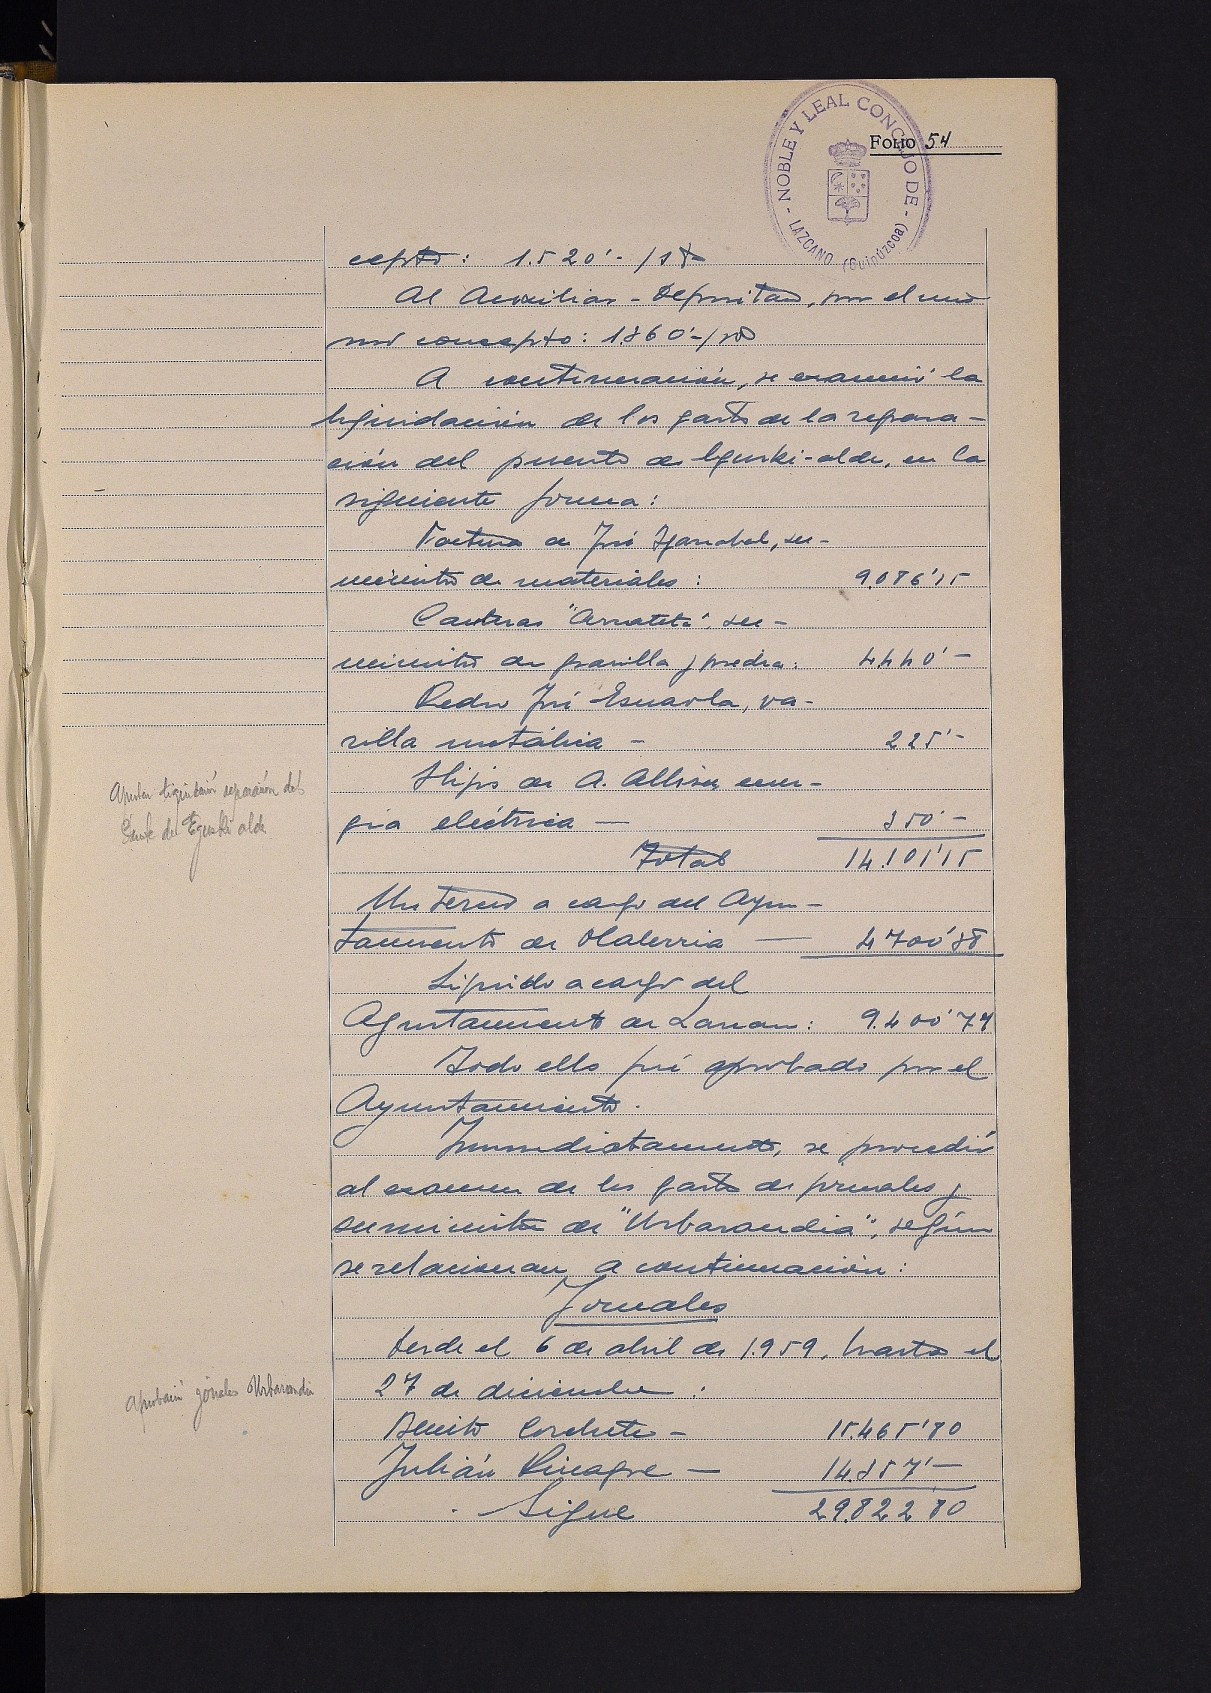 NOBLE Y LEAL CONCEJO DE
LAZCANO (Guipúzcoa)
FOLIO 54
cepto: 1.520'-
Al Auxiliar-Depositario, por el mis
mo concepto: 1.360'-
A continuación, se examinó la
liquidación de los gastos de la repara-
ción del puente de Eguzki-alde, en la
siguiente forma:
Factura de José, su-
ministro de materiales: 9.086'15
Canteras "Arrateta", su-
ministro de gravilla y piedra: 4.440'-
Pedro José Esnaola, va-
rilla metálica - 225'-
Hijos de A. Albisu, ener-
gía eléctrica - 350'-
Total 14.101'15
Un tercio a cargo del Ayun-
tamiento de Olaberria - 4.700'38
Líquido a cargo del
Ayuntamiento de Lazcano: 9.400'77
Todo ello fué aprobado por el
Ayuntamiento.
Inmediatamente, se procedió
al examen de los gastos de jornales y
suministro de "Urbarandia", según
se relacionan a continuación:
Jornales
Desde el 6 de abril de 1.959, hasta el
27 de diciembre:
Benito Corchete - 15.465'80
Julián Vinagre - 14.357'-
Sigue 29.822'80
liquidación reparación del
Puente de Eguzki alde
Aprobación jornales Urbarandia